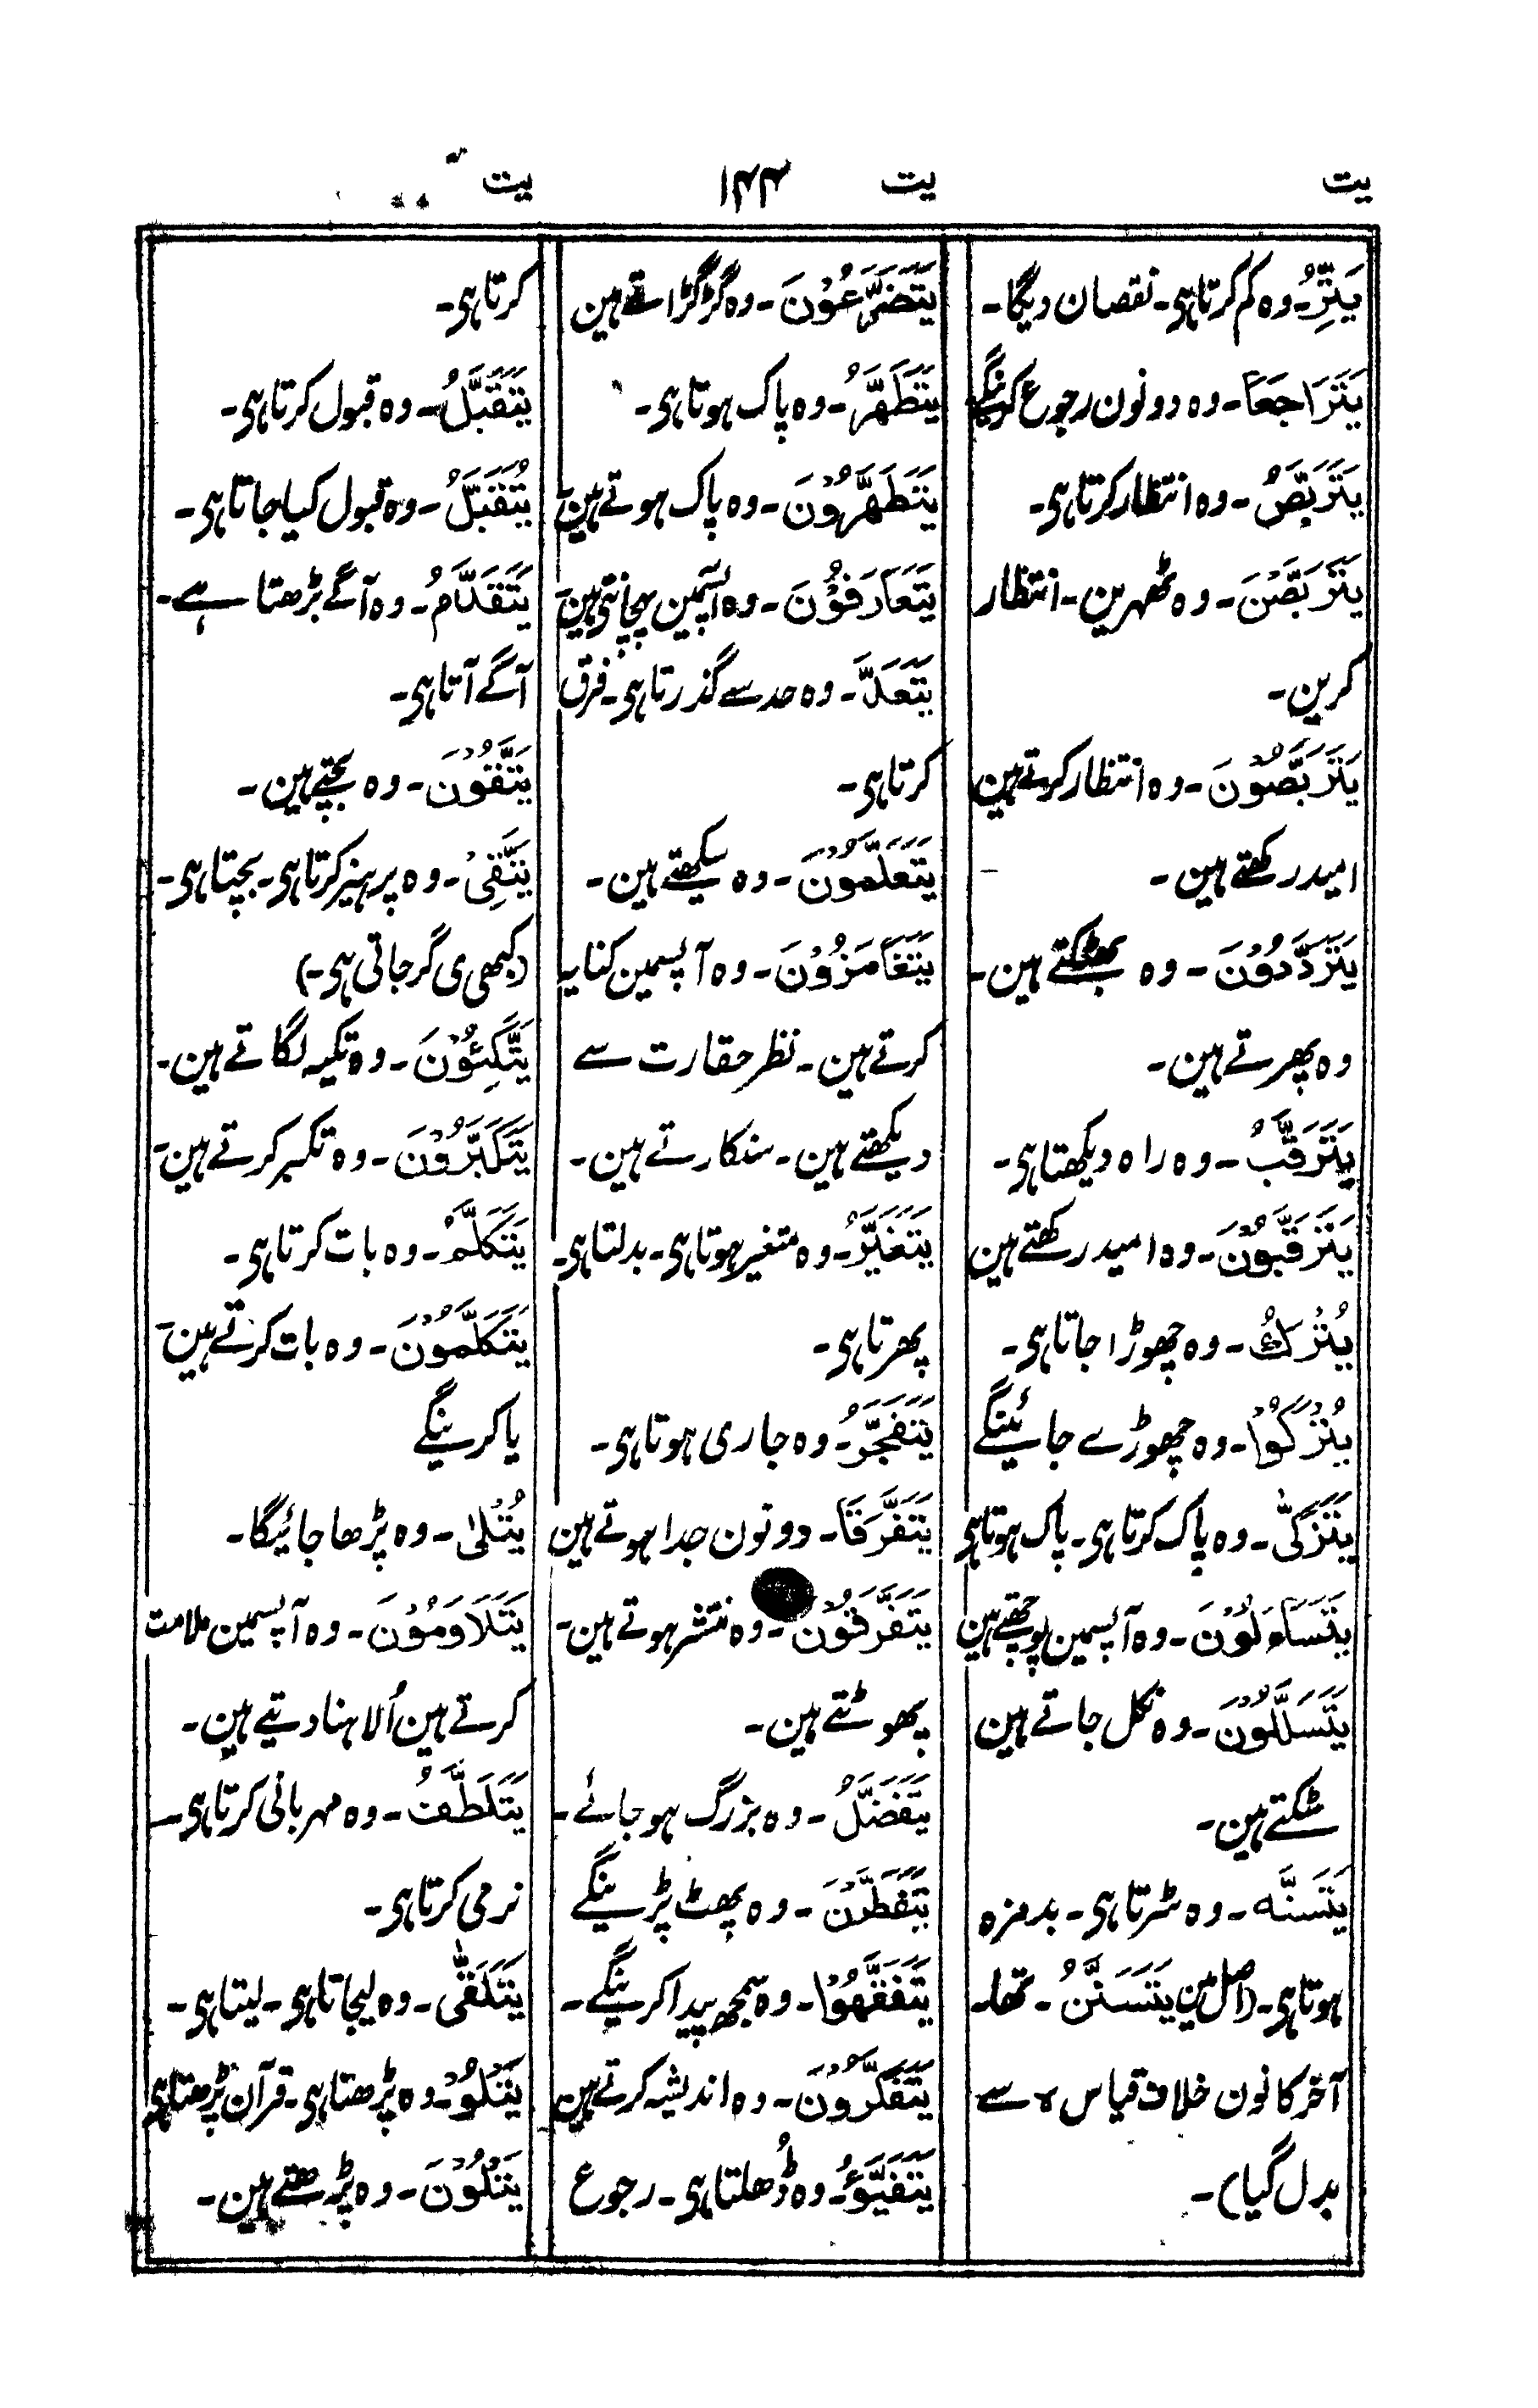 یت
یت
۱۴۴
یت
یَتِرُ۔ وہ کم کرتا ہی۔ نقصان دیگا۔
یَتَرَاجَعَا۔ وہ دونون رجوع کرینگے
یَتَرَبَّصُ۔ وہ انتظار کرتا ہی۔
یَتَرَبَّصْنَ۔ وہ ٹھہرین۔ انتظار
کرین۔
یَتَرَبَّصُوْنَ۔ وہ انتظار کرتے ہین
امید رکھتے ہین۔
یَتَرَدَّدُوْنَ۔ وہ بھٹکتے ہین۔
وہ پھرتے ہین۔
یَتَرَقَّبُ۔ وہ راہ دیکھتا ہی۔
یَتَرَقَّبُوْنَ۔ وہ امید رکھتے ہین
یُتْرَكُ۔ وہ چھوڑا جاتا ہی۔
یُتْرَكُوْا۔ وہ چھوڑے جائینگے
یَتَزَكّٰی۔ وہ پاک کرتا ہی۔ پاک ہوتا ہی
یَتَسَآءَلُوْنَ۔ وہ آپسمین پوچھتے ہین
یَتَسَلَّلُوْنَ۔ وہ نکل جاتے ہین
سٹکتے ہین۔
یَتَسَنَّه۔ وہ سڑتا ہی۔ بدمزہ
ہوتا ہی۔ (اصل مین یَتَسَنَّنُ۔ تھا۔
آخر کا نون خلاف قیاس ہ سے
بدل گیا)۔
یَتَضَرَّعُوْنَ۔ وہ گڑگڑاتے ہین
یَتَطَهَّرُ۔ وہ پاک ہوتا ہی۔
یَتَطَهَّرُوْنَ۔ وہ پاک ہوتے ہین۔
یَتَعَارَفُوْنَ۔ وہ آپسمین پہچانتے ہین۔
یَتَعَدَّ۔ وہ حد سے گذرتا ہی۔ فرق
کرتا ہی۔
یَتَعَلَّمُوْنَ۔ وہ سیکھتے ہین۔
یَتَغَامَزُوْنَ۔ وہ آپسمین کنایہ
کرتے ہین۔ نظر حقارت سے
دیکھتے ہین۔ سنکارتے ہین۔
یَتَغَیَّرُ۔ وہ متغیر ہوتا ہی۔ بدلتا ہی۔
پھرتا ہی۔
یَتَفَجَّرُ۔ وہ جاری ہوتا ہی۔
یَتَفَرَّقَا۔ دونون جدا ہوتے ہین
یَتَفَرَّقُوْنَ۔ وہ منتشر ہوتے ہین۔
پھوٹتے ہین۔
یَتَفَضَّلُ۔ وہ بزرگ ہو جائے۔
یَتَفَطَّرْنَ۔ وہ پھٹ پڑینگے
یَتَفَقَّهُوْا۔ وہ سمجھ پیدا کرینگے۔
یَتَفَكَّرُوْنَ۔ وہ اندیشہ کرتے ہین
یَتَفَیَّؤُ۔ وہ ڈُھلتا ہی۔ رجوع
کرتا ہی۔
یَتَقَبَّلُ۔ وہ قبول کرتا ہی۔
یُتَقَبَّلُ۔ وہ قبول کیا جاتا ہی۔
یَتَقَدَّمُ۔ وہ آگے بڑھتا ہے۔
آگے آتا ہی۔
یَتَّقُوْنَ۔ وہ بچتے ہین۔
یَتَّقِیْ۔ وہ پرہیز کرتا ہی۔ بچتا ہی۔
(کبھی ی گر جاتی ہی۔)
یَتَّكِئُوْنَ۔ وہ تکیہ لگاتے ہین۔
یَتَكَبَّرُوْنَ۔ وہ تکبر کرتے ہین۔
یَتَكَلَّمُ۔ وہ بات کرتا ہی۔
یَتَكَلَّمُوْنَ۔ وہ بات کرتے ہین۔
یا کرینگے
یُتْلٰی۔ وہ پڑھا جائیگا۔
یَتَلَاوَمُوْنَ۔ وہ آپسمین ملامت
کرتے ہین اُلاہنا دیتے ہین۔
یَتَلَطَّفُ۔ وہ مہربانی کرتا ہی۔
نرمی کرتا ہی۔
یَتَلَقّٰی۔ وہ لیجاتا ہی۔ لیتا ہی۔
یَتْلُوْ۔ وہ پڑھتا ہی۔ قرآن پڑھتا ہی
یَتْلُوْنَ۔ وہ پڑھتے ہین۔